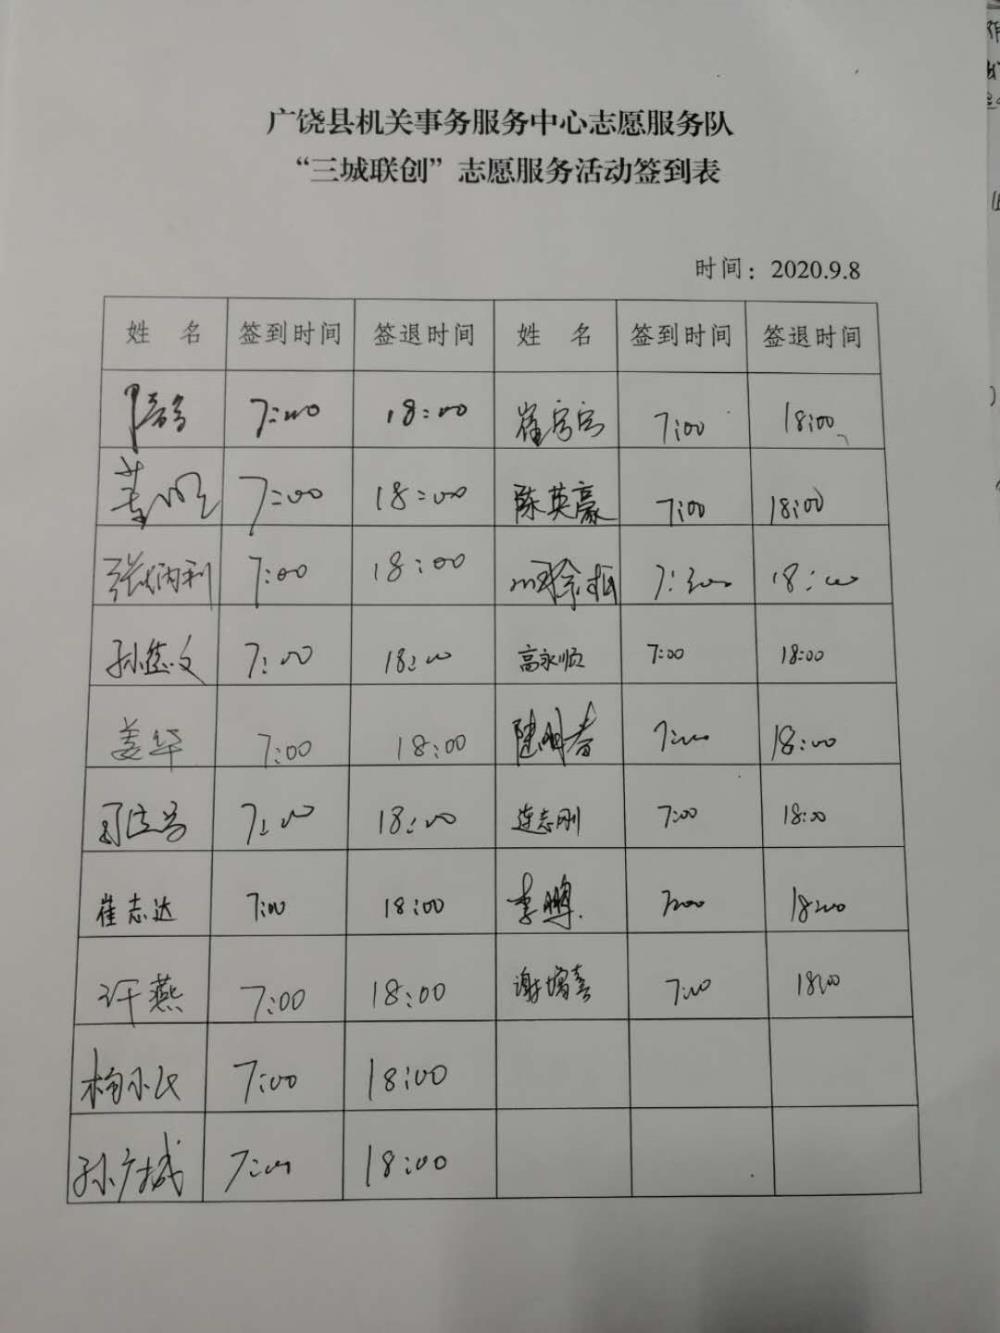 广饶县机关事务服务中心志愿服务队
“三城联创”志愿服务活动签到表
时间：2020.9.8
姓 名 签到时间 签退时间 姓 名 签到时间 签退时间
7:00 18:00 7:00 18:00
7:00 18:00 陈英豪 7:00 18:00
张炳利 7:00 18:00 7:00 18:00
孙德文 7:00 18:00 高永顺 7:00 18:00
姜华 7:00 18:00 7:00 18:00
7:00 18:00 连志刚 7:00 18:00
崔志达 7:00 18:00 李鹏 7:00 18:00
许燕 7:00 18:00 谢增喜 7:00 18:00
7:00 18:00
孙广城 7:00 18:00